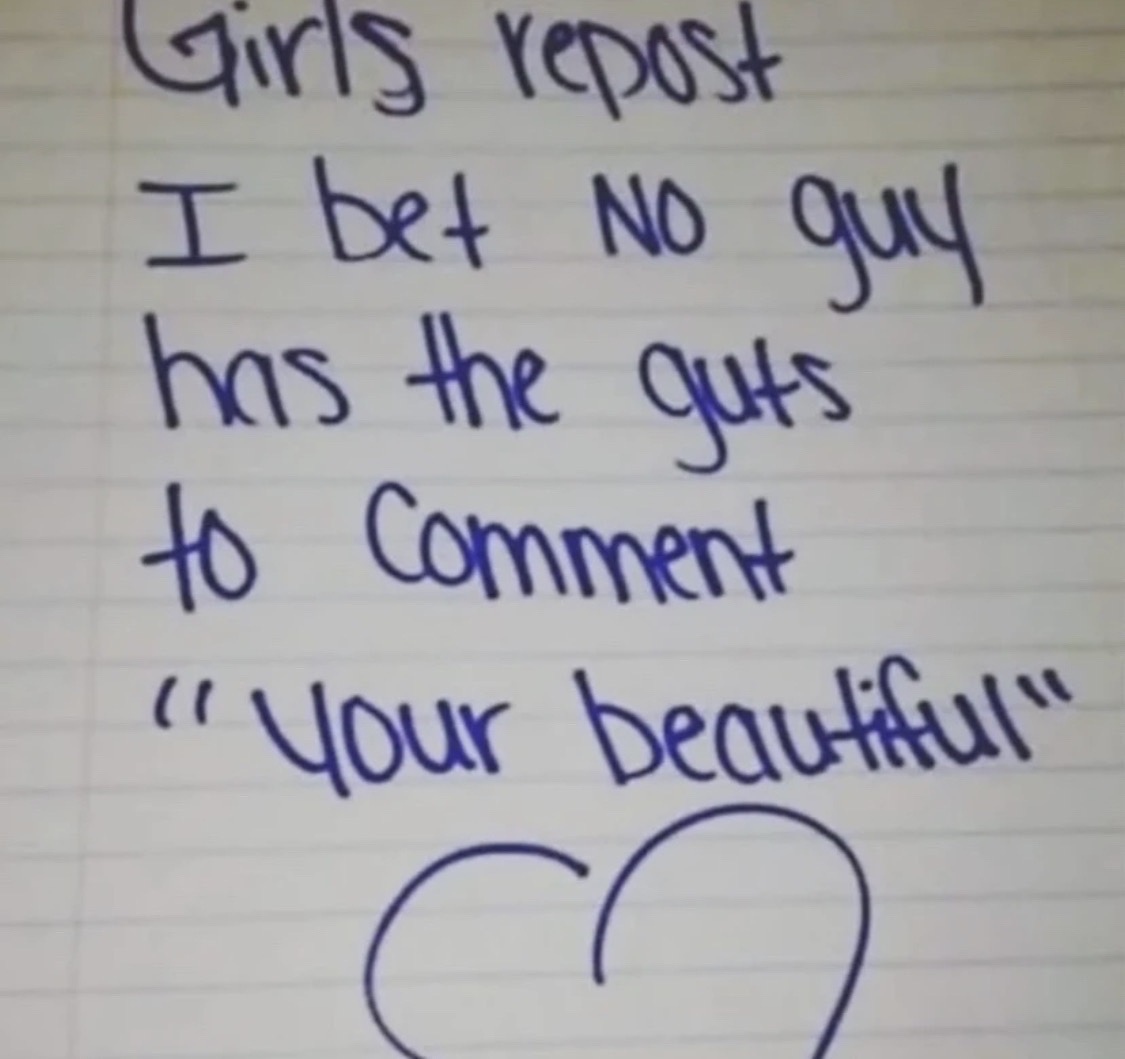 Girls repost
I bet NO guy
has the guts
to Comment
"Your beautiful"